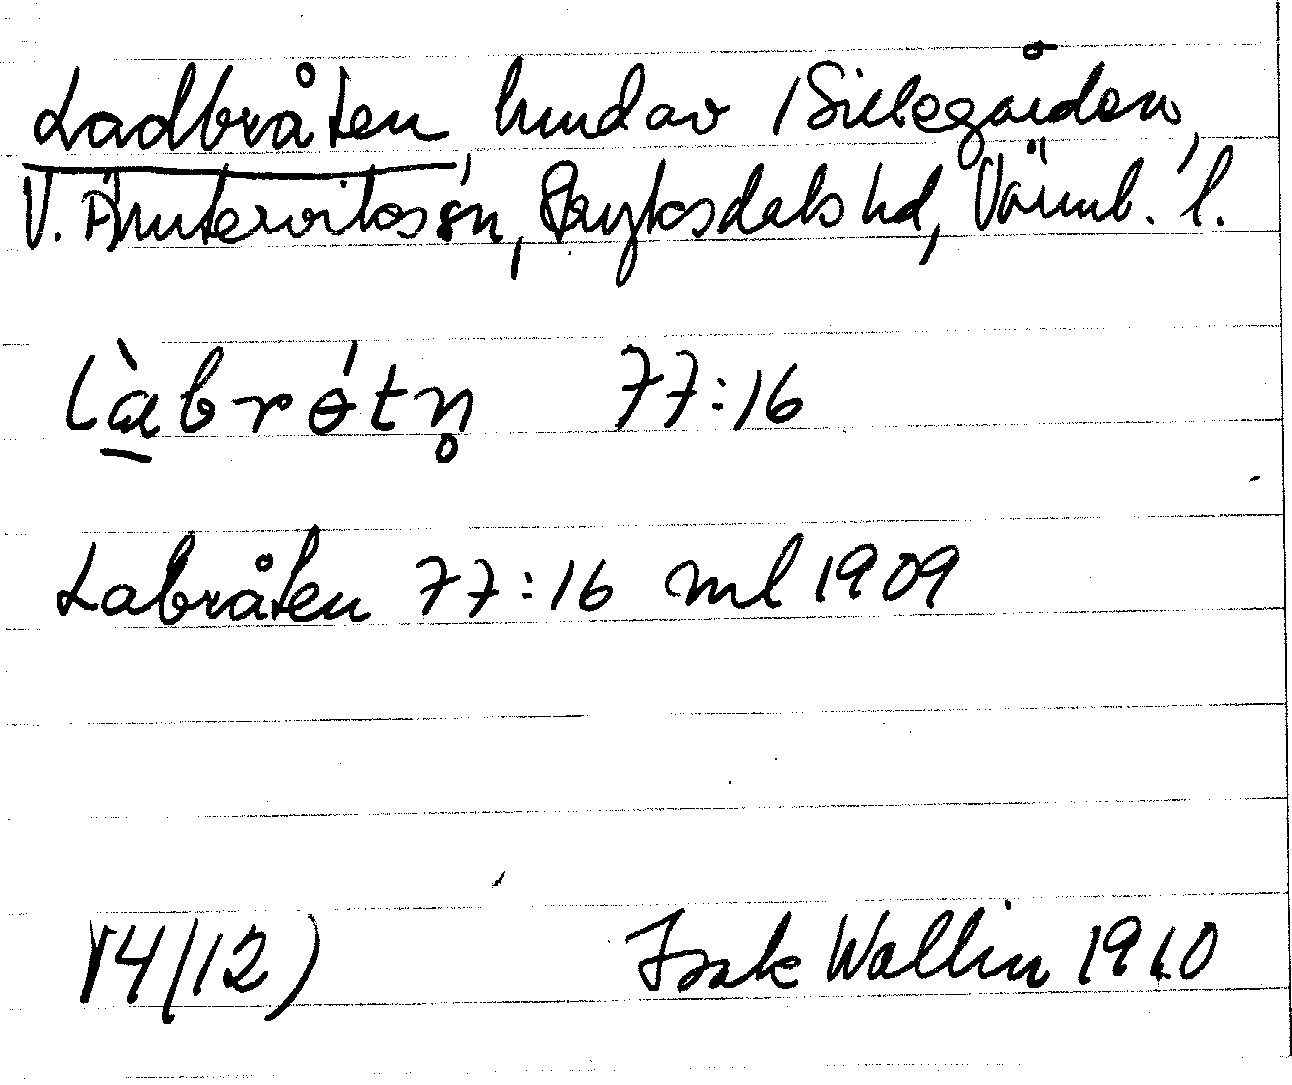 Ladbråten, hmd av 1 Sillegården,
V. Ämterviks sn, Fryksdals hd, Värml. l.
làbrótn̥ 77:16
Labråten 77:16 ml 1909
14/12) Isak Wallin 1910